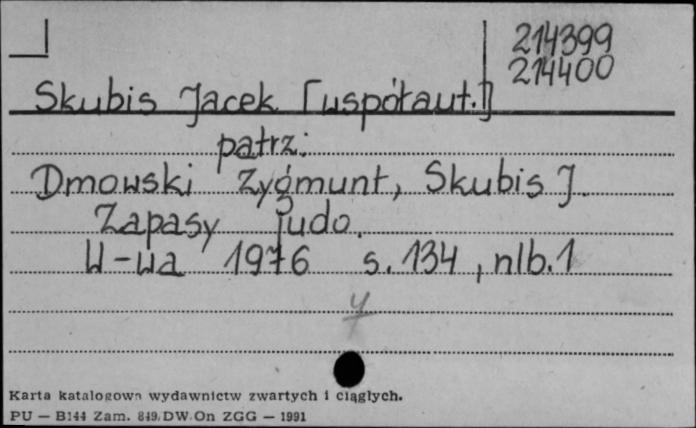 214399
214400
Skubis Jacek [współaut.]
patrz:
Dmowski Zygmunt, Skubis J.
Zapasy judo.
W-wa 1976 s. 134, nlb. 1
Karta katalogowa wydawnictw zwartych i ciągłych.
PU — B144 Zam. 849/DW.On ZGG — 1991